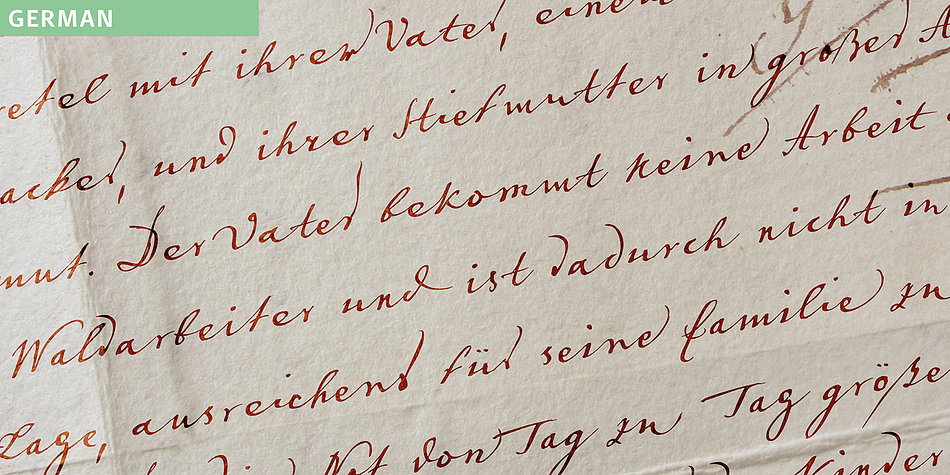 GERMAN
retel mit ihrem Vater, einem
acker, und ihrer Stiefmutter in großer A
mut. Der Vater bekommt keine Arbeit
Waldarbeiter und ist dadurch nicht in
Lage, ausreichend für seine Familie zu
Not von Tag zu Tag größe
Kinder